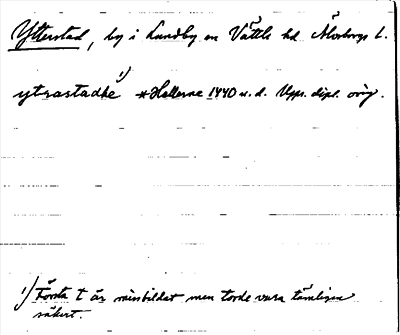 Ytterstad, by i Lundby sn Vättle hd Älvsborgs l.
ytrastadhe 1) *Hellerne 1440 u.d. Upps. dipl. orig.
1) Första t är missbildat men torde vara tämligen
säkert.